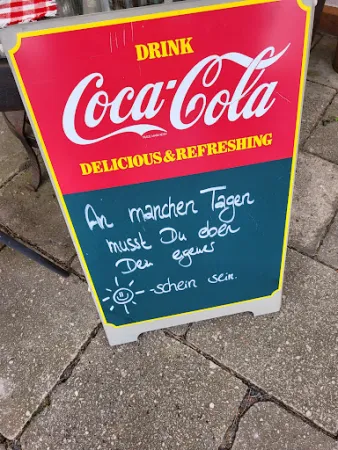 DRINK
Coca-Cola
DELICIOUS & REFRESHING
An manchen Tagen
musst Du eben
Dein eigener
-schein sein.